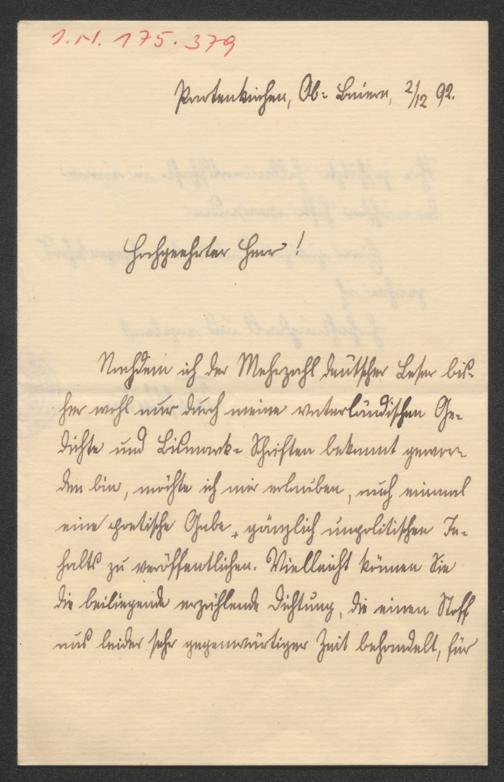 I.N. 175.379
Partenkirchen, Ob: Baiern, 2/12 92.
Hochgeehrter Herr!
Nachdem ich der Mehrzahl deutscher Leser bis-
her wohl nur durch meine vaterländischen Ge-
dichte und Bismarck-Schriften bekannt gewor-
den bin, möchte ich mir erlauben, auch einmal
eine poetische Gabe, gänzlich unpolitischen In-
halts zu veröffentlichen. Vielleicht können Sie
die beiliegende erzählende Dichtung, die einen Stoff
aus leider sehr gegenwärtiger Zeit behandelt, für